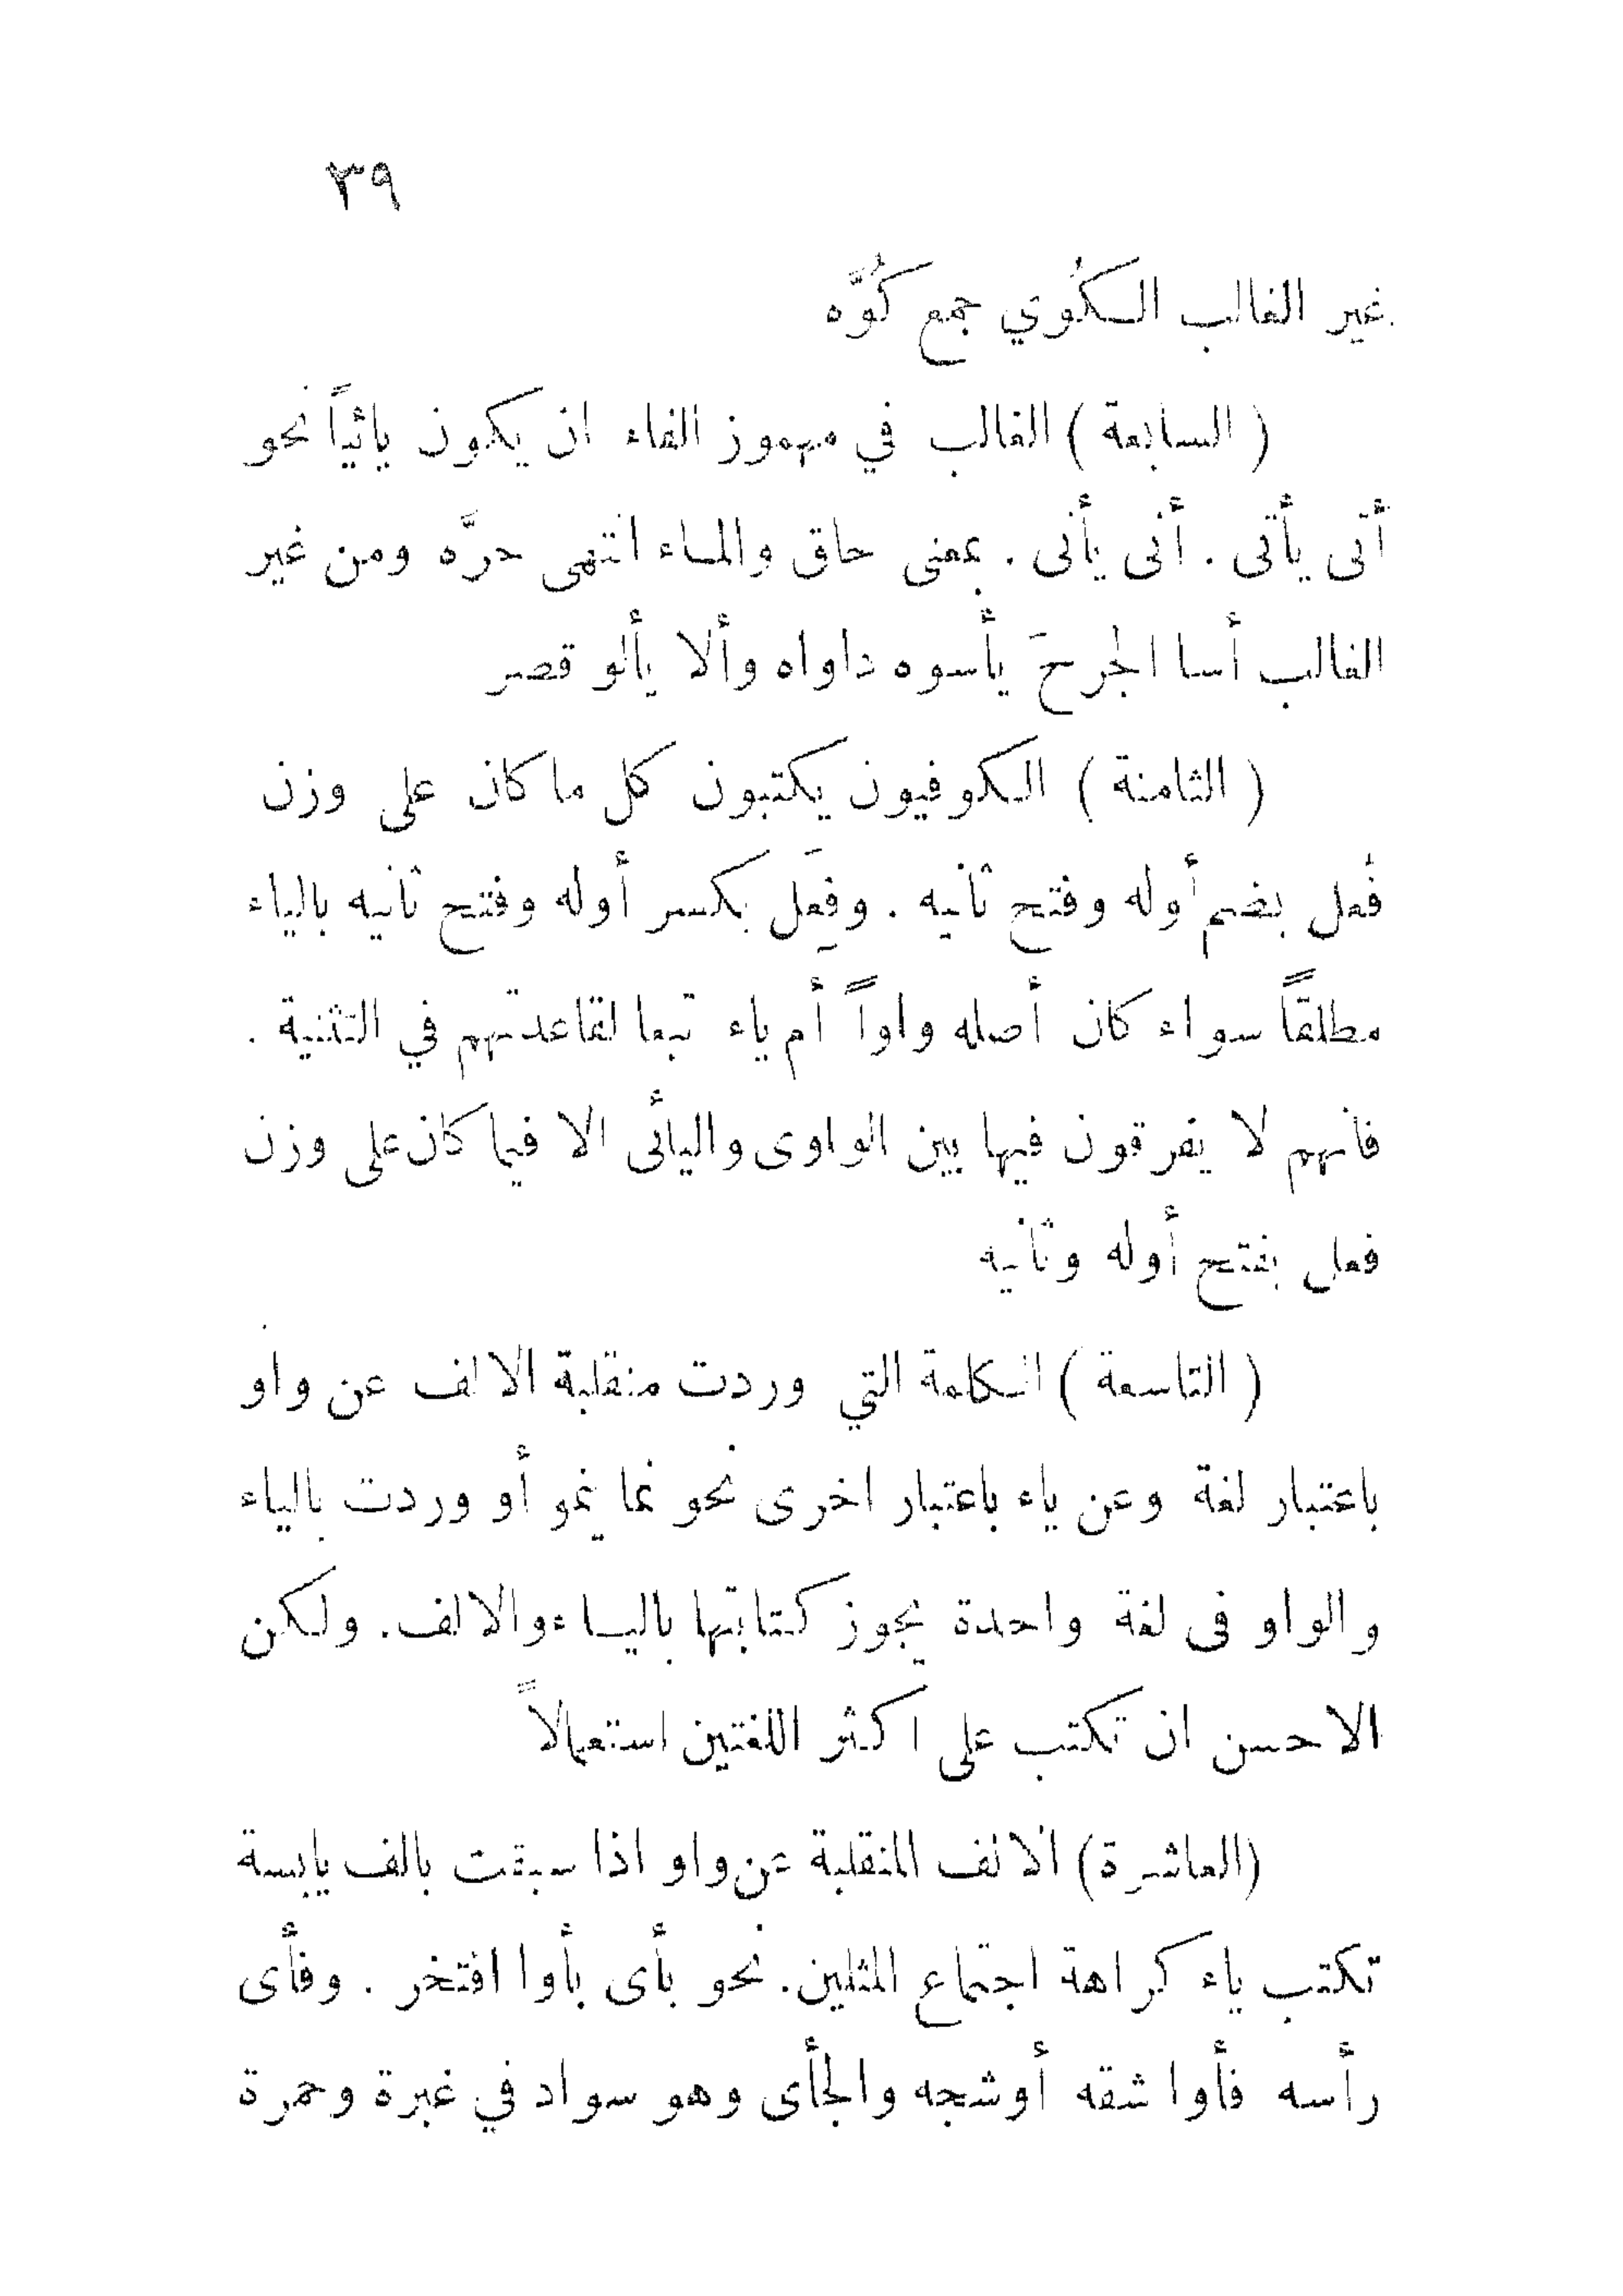 ٣٩
غير الغالب الكُوي جمع كُوَّه
( السابعة ) الغالب في مهموز الفاء ان يكون يائياً نحو
أتى يأتى . أنى يأنى . بمعنى حاق والماء انتهى حرَّه ومن غير
الغالب أسا الجرحَ يأسوه داواه وألا يألو قصر
( الثامنة ) الكوفيون يكتبون كل ما كان على وزن
فُعل بضم أوله وفتح ثانيه . وفِعَل بكسر أوله وفتح ثانيه بالياء
مطلقاً سواء كان أصله واواً أم ياء تبعا لقاعدتهم في التثنية .
فانهم لا يفرقون فيها بين الواوى واليائى الا فيما كان على وزن
فعل بفتح أوله وثانيه
( التاسعة ) الكلمة التي وردت منقلبة الالف عن واو
باعتبار لغة وعن ياء باعتبار اخرى نحو نما ينمو أو وردت بالياء
والواو فى لغة واحدة يجوز كتابتها بالياء والالف. ولكن
الاحسن ان تكتب على اكثر اللغتين استعمالاً
(العاشرة) الالف المنقلبة عن واو اذا سبقت بالف يابسة
تكتب ياء كراهة اجتماع المثلين. نحو بأى بأوا افتخر . وفأى
رأسه فأوا شقه أوشجه والجأى وهو سواد في غبرة وحمرة